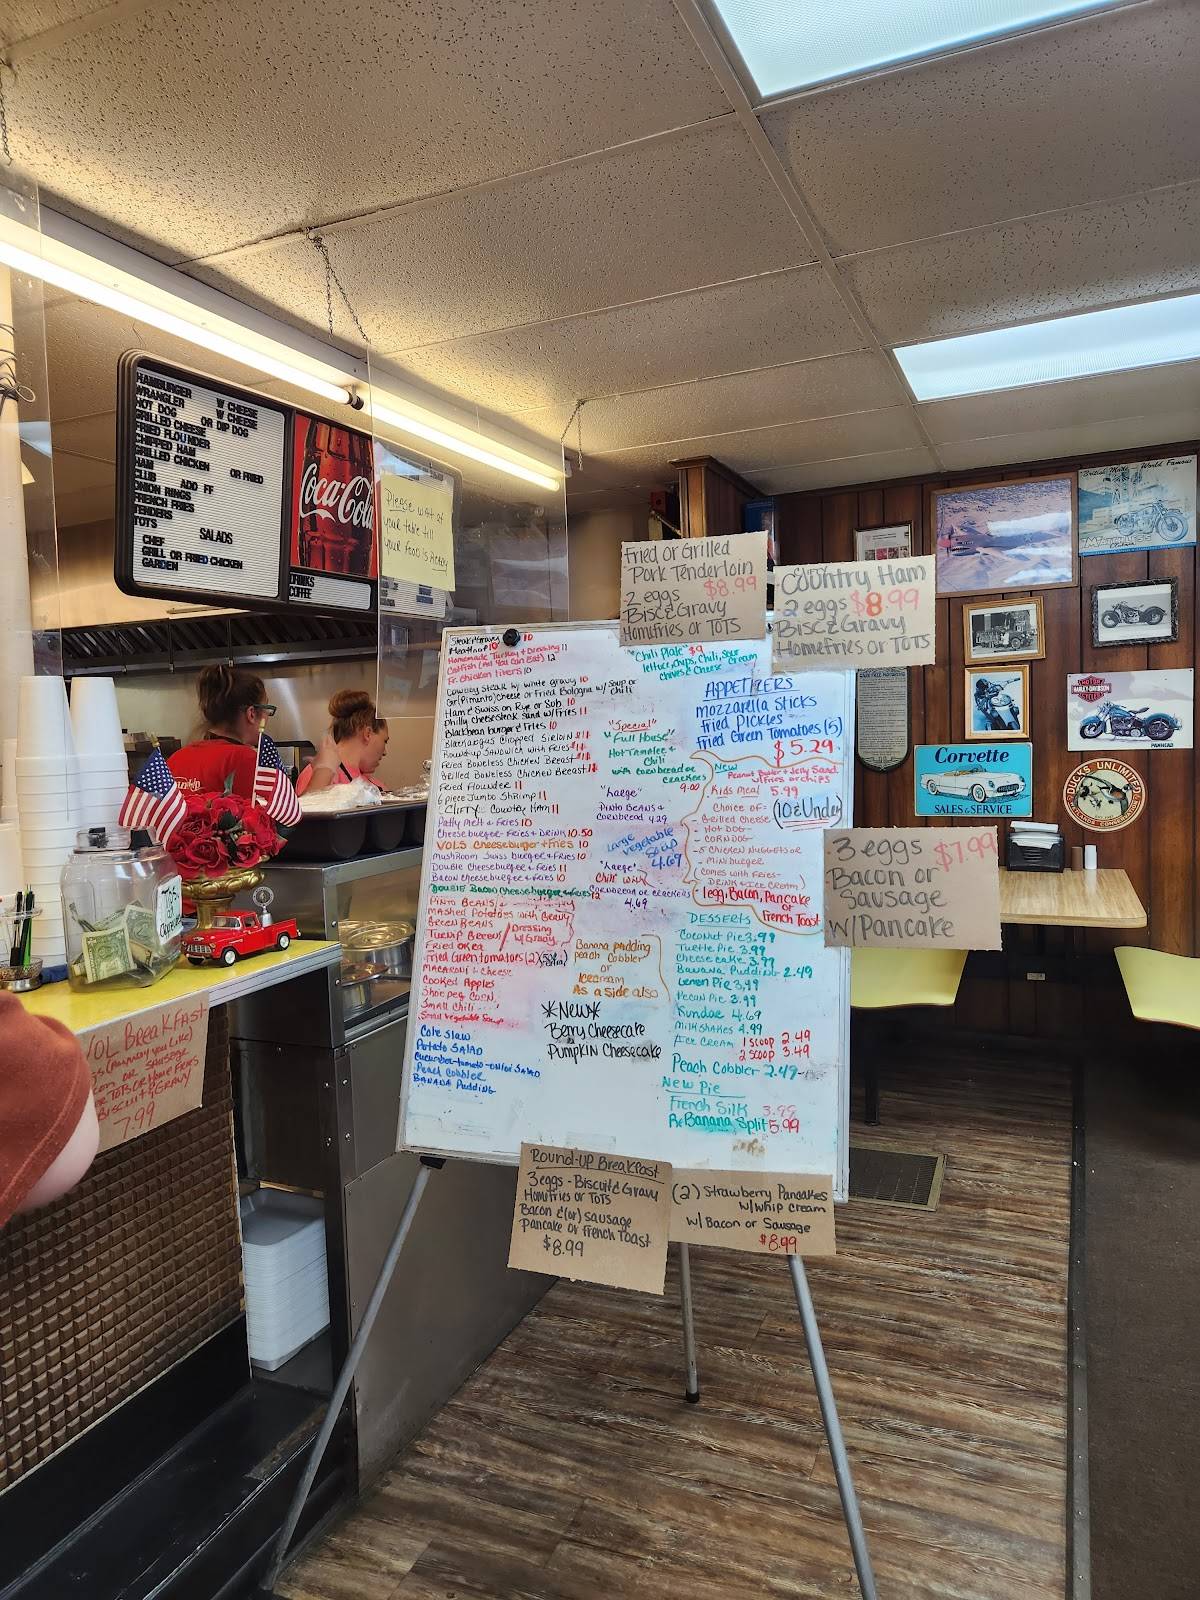 HAMBURGER W CHEESE
WRANGLER W CHEESE
HOT DOG OR DIP DOG
GRILLED CHEESE
FRIED FLOUNDER
CHIPPED HAM
GRILLED CHICKEN OR FRIED
HAM
CLUB ADD FF
ONION RINGS
FRENCH FRIES
TENDERS
TOTS
SALADS
CHEF
GRILL OR FRIED CHICKEN
GARDEN
Coca-Cola
DRINKS
COFFEE
Please wait at
your table till
your food is Ready
Fried or Grilled
Pork Tenderloin
2 eggs $8.99
Bisc & Gravy
Homefries or TOTS
Country Ham
2 eggs $8.99
Bisc & Gravy
Homefries or TOTS
3 eggs $7.99
Bacon or
Sausage
w/Pancake
Steak & Gravy 10
Meatloaf 10
Homemade Turkey & Dressing 11
Catfish (All You Can Eat) 12
Fr. Chicken livers 10
Cowboy Steak w/ white gravy 10
Grl (Pimento) Cheese or Fried Bologna w/ Soup or Chili
Ham & Swiss on Rye or Sub 10
Philly cheesesteak Sand w/ Fries 11
Blackbean burger & Fries 10
Blackangus Chopped Sirloin 11
Round-up Sandwich with Fries 11
Fried Boneless Chicken Breast 11
Grilled Boneless Chicken Breast 11
Fried Flounder 11
6 piece Jumbo Shrimp 11
Country Ham 11
Patty Melt & Fries 10
Cheeseburger + Fries + DRINK 10.50
VOLS Cheeseburger + Fries 10
Mushroom Swiss burger + Fries 10
Double Cheeseburger + Fries 11
Bacon Cheeseburger + Fries 10
Double Bacon Cheeseburger + Fries 12
Pinto Beans
Mashed Potatoes with Gravy
Green Beans
Turnip Greens / Dressing w/ Gravy
Fried Okra
Fried Green tomatoes (2)
Macaroni & Cheese
Cooked Apples
Shoepeg Corn
Small Chili
Small vegetable Soup
Cole Slaw
Potato Salad
Cucumber-tomato-onion Salad
Peach Cobbler
Banana Pudding
"Chili Plate" $9
lettuce, Chips, Chili, Sour
Chives & Cheese Cream
"Special"
"Full House"
Hot Tamales &
Chili
with cornbread or
crackers
9.00
"Large"
Pinto Beans &
Cornbread 4.29
Large
Vegetable
Soup
4.69
"Large"
Chili with
Cornbread or crackers
4.69
Banana pudding
peach Cobbler
or
Icecream
As a side also
*New*
Berry Cheesecake
Pumpkin Cheesecake
APPETIZERS
Mozzarella Sticks
Fried Pickles
Fried Green Tomatoes (5)
$5.29
New
Peanut Butter & Jelly Sand
w/ fries or chips
Kids Meal 5.99
Choice of: (10 & Under)
- Grilled Cheese
- Hot Dog
- Corndog
- 5 Chicken Nuggets or
- Miniburger
Comes with Fries-
Drink & Ice Cream)
1 egg, Bacon, Pancake
or
French Toast
Desserts
Coconut Pie 3.99
Turtle Pie 3.99
Cheesecake 3.99
Banana Pudding 2.49
Lemon Pie 3.99
Pecan Pie 3.99
Sundae 4.69
Milkshakes 4.99
Ice Cream 1 scoop 2.49
2 scoop 3.49
Peach Cobbler 2.49
New Pie
French Silk 3.99
Banana Split 5.99
Round-up Breakfast
3 eggs - Biscuit & Gravy
Homefries or TOTS
Bacon & (or) Sausage
Pancake or French Toast
$8.99
(2) Strawberry Pancakes
w/whip cream
w/ Bacon or Sausage
$8.99
VOL Breakfast
(Anyway you Like)
or Sausage
or TOTS or Home Fries
Biscuit & Gravy
7.99
Tips
British Made World Famous
MOTOR
HARLEY-DAVIDSON
CYCLES
PANHEAD
Corvette
SALES & SERVICE
DUCKS UNLIMITED